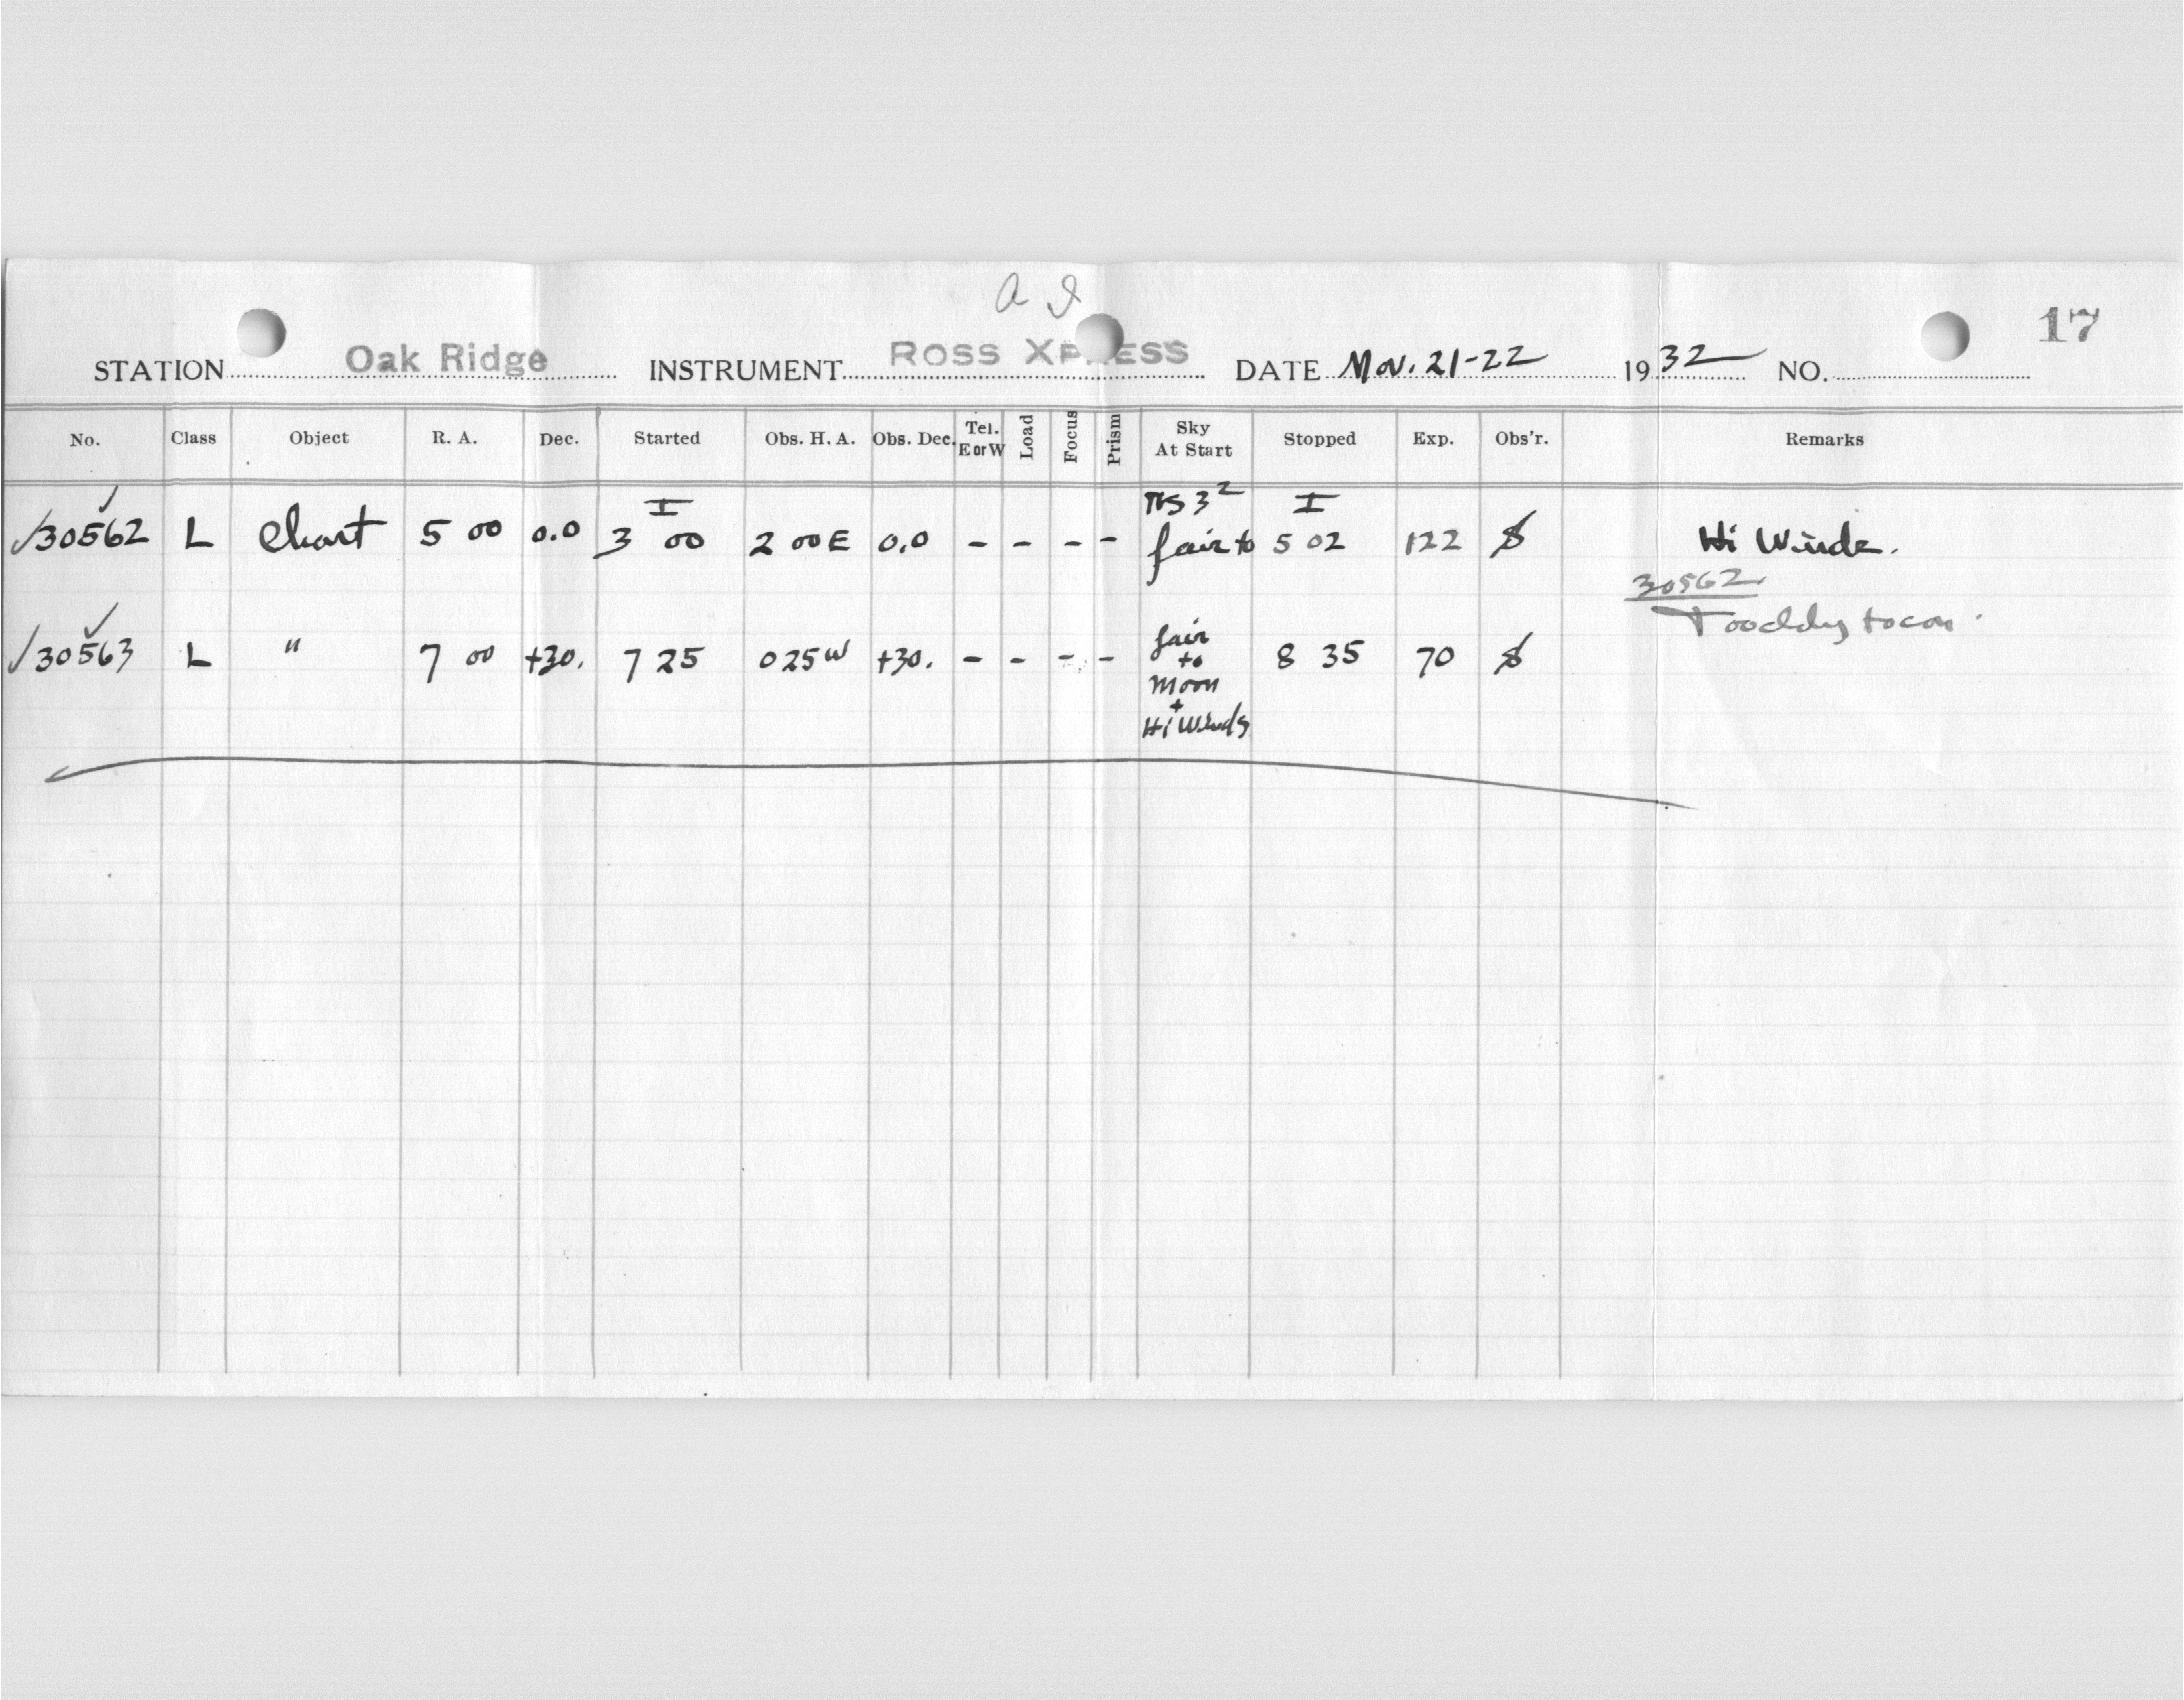 a I
17
STATION Oak Ridge INSTRUMENT ROSS XPRESS DATE Nov. 21-22 1932 NO.
No. Class Object R. A. Dec. Started Obs. H. A. Obs. Dec. Tel. E or W Load Focus Prism Sky At Start Stopped Exp. Obs'r. Remarks
I 3² I
✓30562 ✓ L Chart 5 00 0.0 3 00 2 00 E 0.0 - - - - fair to 5 02 122 Hi Winds.
30562
✓30563 ✓ L " 7 00 +30. 7 25 0 25 W +30. - - - - fair to moon + Hi Winds 8 35 70